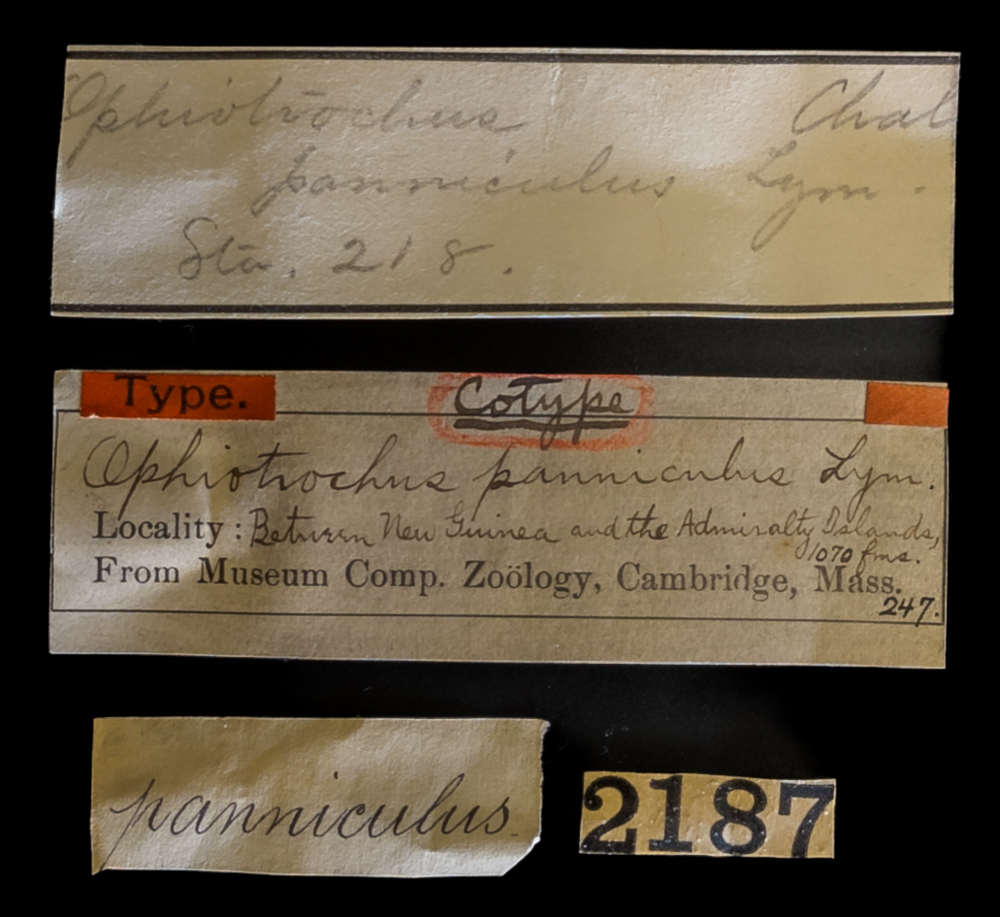 Ophiotrochus Chal
panniculus Lym.
Sta. 218.
Type. Cotype
Ophiotrochus panniculus Lym.
Locality: Between New Guinea and the Admiralty Islands,
1070 fms.
From Museum Comp. Zoölogy, Cambridge, Mass.
247.
panniculus
2187